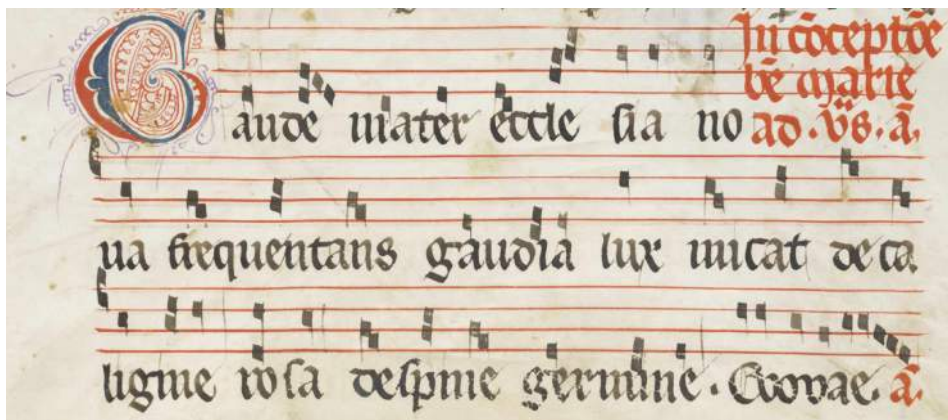 In cōceptōe
bē marie
Gaude mater eccle sia no ad . vs̄ . ā.
ua frequentans gaudia lux micat de ca
ligine rosa despine germine . Euouae . ā.